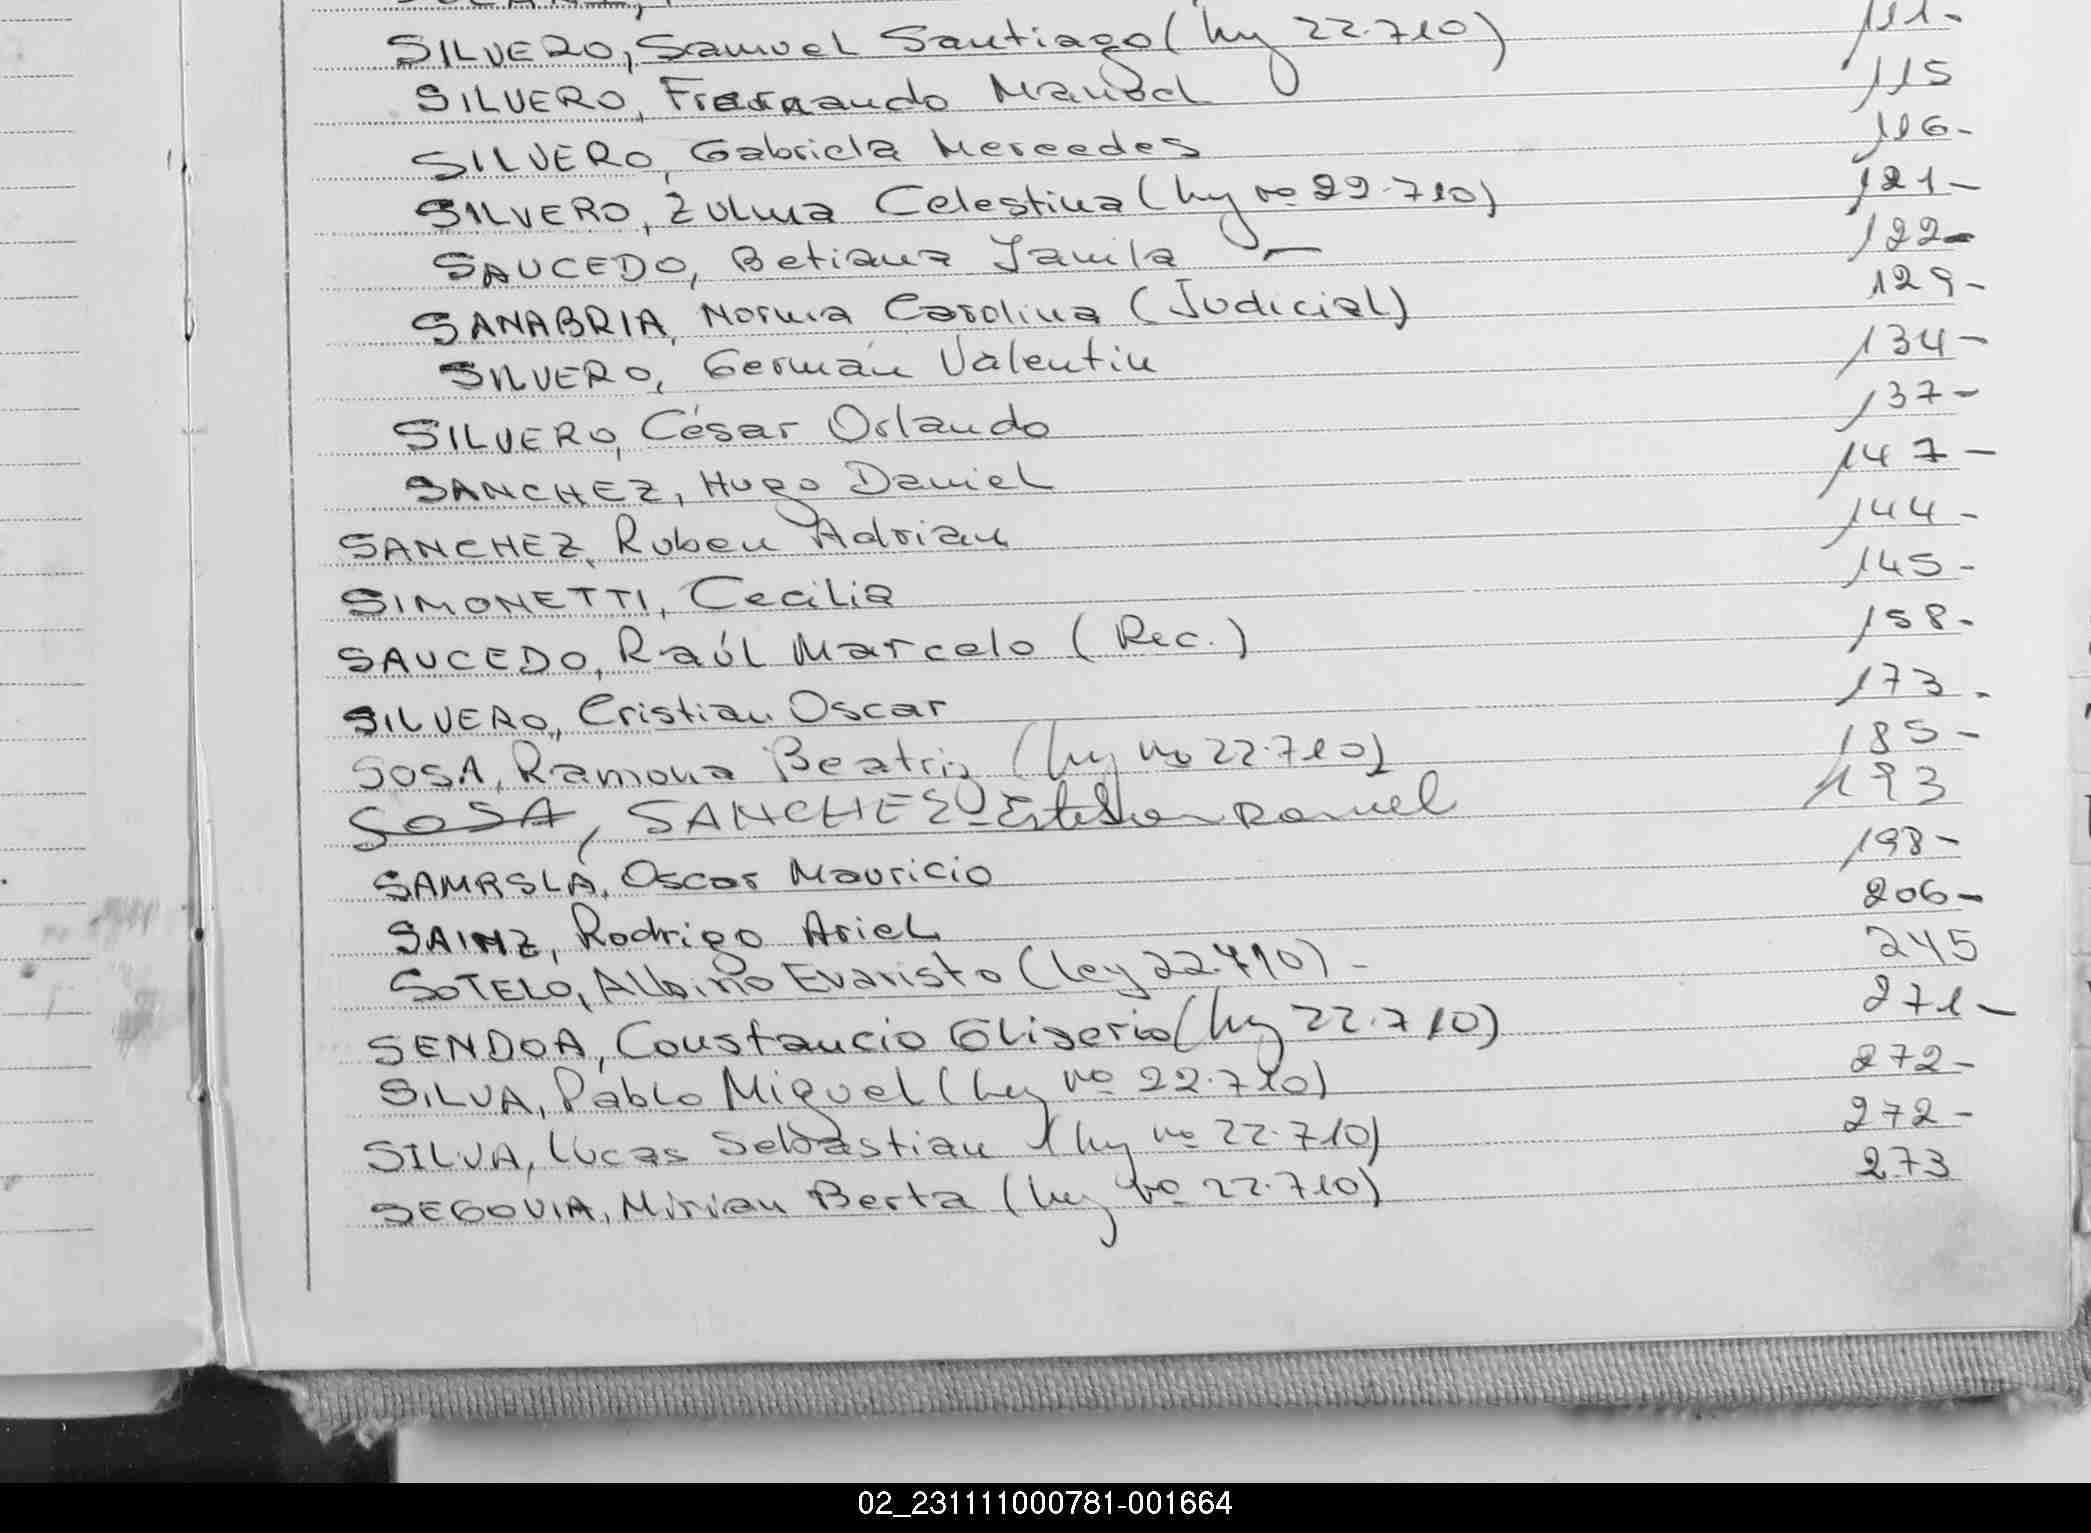 SILVERO, Samuel Santiago (ley 22.710) 111-
SILVERO, Fernando Manuel 115
SILVERO, Gabriela Mercedes 116-
SILVERO, Zulma Celestina (ley no 22.710) 121-
SAUCEDO, Betiana Yamila - 122-
SANABRIA, Norma Carolina (Judicial) 129-
SILVERO, Germán Valentin 134-
SILVERO, César Orlando 137-
SANCHEZ, Hugo Daniel 147-
SANCHEZ, Ruben Adrian 144-
SIMONETTI, Cecilia 145-
SAUCEDO, Raúl Marcelo (Rec.) 158-
SILVERO, Cristian Oscar 173-
SOSA, Ramona Beatriz (ley no 22.710) 185-
SOSA, SANCHEZ Esteban Daniel 193
SAMRSLA, Oscar Mauricio 198-
SAINZ, Rodrigo Ariel 206-
SOTELO, Albino Evaristo (ley 22.710) - 245
SENDOA, Constancio Gliserio (ley 22.710) 271-
SILVA, Pablo Miguel (ley no 22.710) 272-
SILVA, Lucas Sebastian (ley no 22.710) 272-
SEGOVIA, Mirian Berta (ley no 22.710) 273
02_231111000781-001664